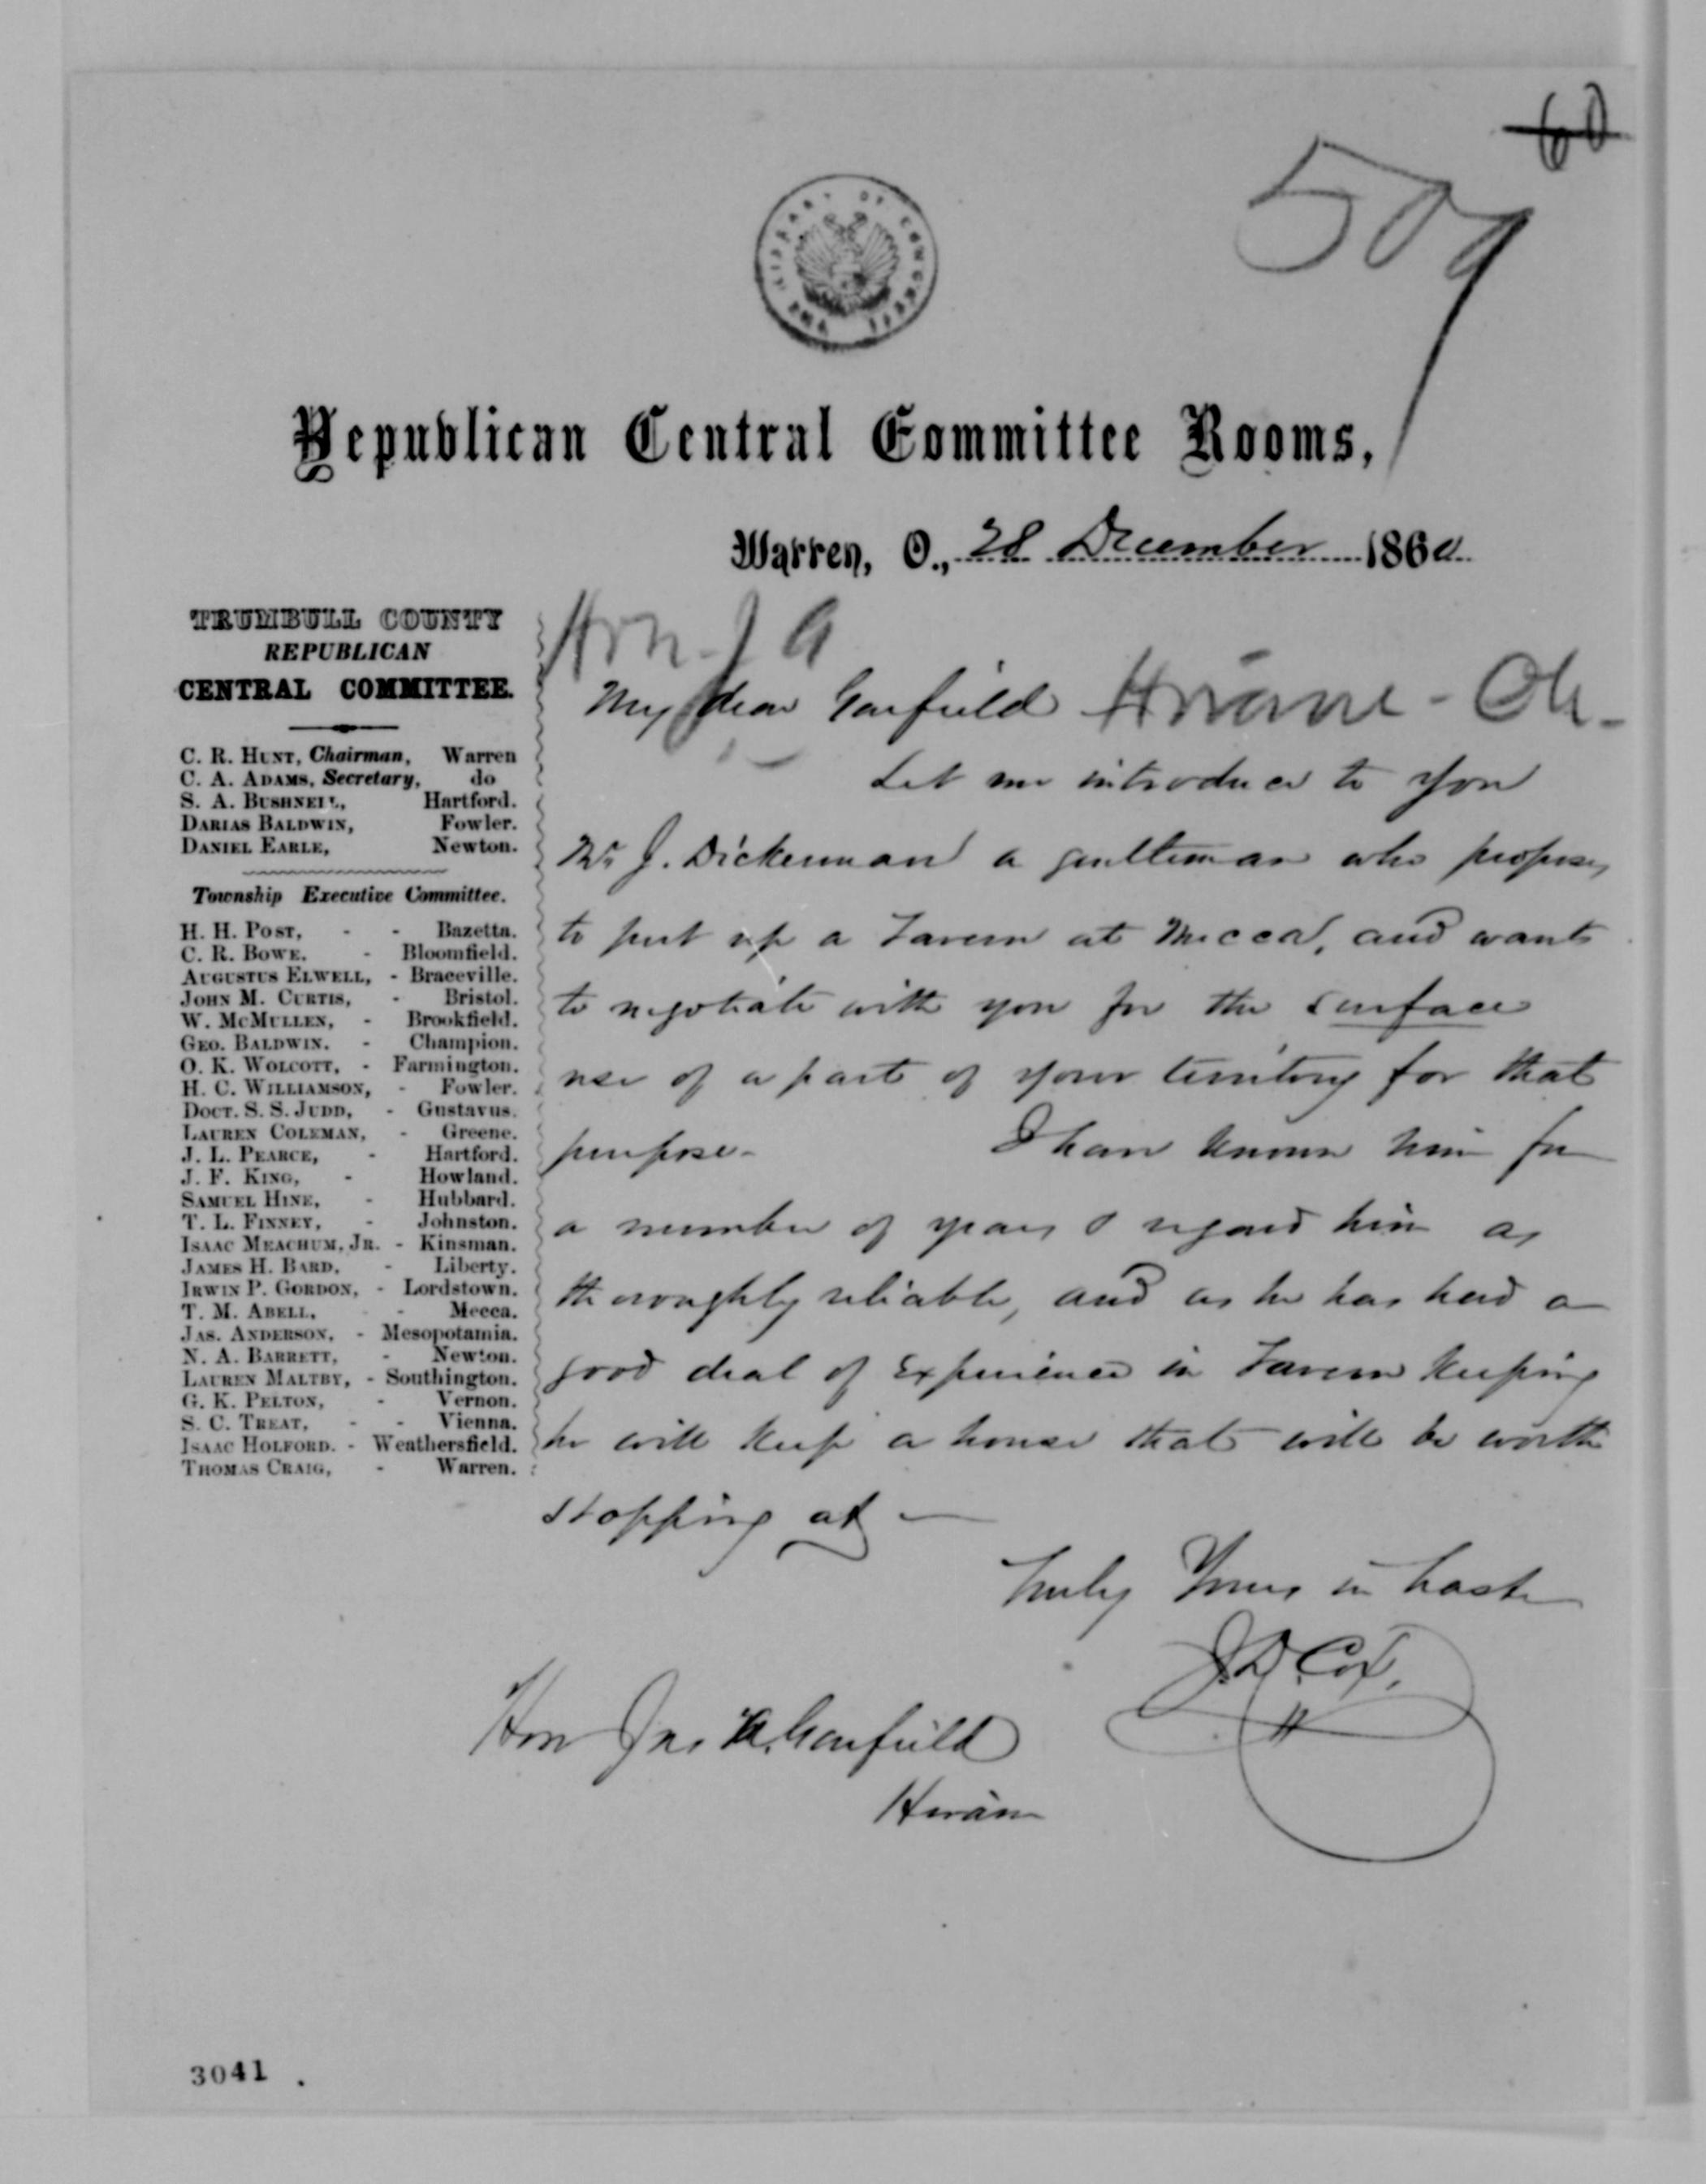 60
509
THE LIBRARY OF CONGRESS
Republican Central Committee Rooms,
Warren, O., 28 December 1860
TRUMBULL COUNTY
REPUBLICAN
CENTRAL COMMITTEE.
C. R. HUNT, Chairman, Warren
C. A. ADAMS, Secretary, do
S. A. BUSHNELL, Hartford.
DARIAS BALDWIN, Fowler.
DANIEL EARLE, Newton.
Township Executive Committee.
H. H. POST, - - Bazetta.
C. R. BOWE. - Bloomfield.
AUGUSTUS ELWELL, - Braceville.
JOHN M. CURTIS, - Bristol.
W. MCMULLEN, - Brookfield.
GEO. BALDWIN. - Champion.
O. K. WOLCOTT, - Farmington.
H. C. WILLIAMSON, - Fowler.
DOCT. S. S. JUDD, - Gustavus.
LAUREN COLEMAN, - Greene.
J. L. PEARCE, - Hartford.
J. F. KING, - Howland.
SAMUEL HINE, - Hubbard.
T. L. FINNEY, - Johnston.
ISAAC MEACHUM, JR. - Kinsman.
JAMES H. BARD, - Liberty.
IRWIN P. GORDON, - Lordstown.
T. M. ABELL, - Mecca.
JAS. ANDERSON, - Mesopotamia.
N. A. BARRETT, - Newton.
LAUREN MALTBY, - Southington.
G. K. PELTON, - Vernon.
S. C. TREAT, - - Vienna.
ISAAC HOLFORD. - Weathersfield.
THOMAS CRAIG, - Warren.
Hon. J A
My dear Garfield
Let me introduce to you
Mr J. Dickerman a gentleman who proposes
to put up a Tavern at Mecca, and wants
to negotiate with you for the surface
use of a part of your territory for that
purpose. I have known him for
a number of years & regard him as
thoroughly reliable, and as he has had a
good deal of experience in Tavern keeping
he will keep a house that will be worth
stopping at —
Truly Yours in haste
J. D. Cox,
Hon Jas A. Garfield
Hiram
3041